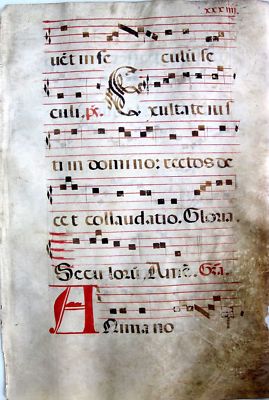 xxxiiij
uēt in se culū se
culi. ps. Exultate ius
ti in domino: rectos de
cet collaudatio. Gloria.
Seculorū. Amē. Gra.
Anima no